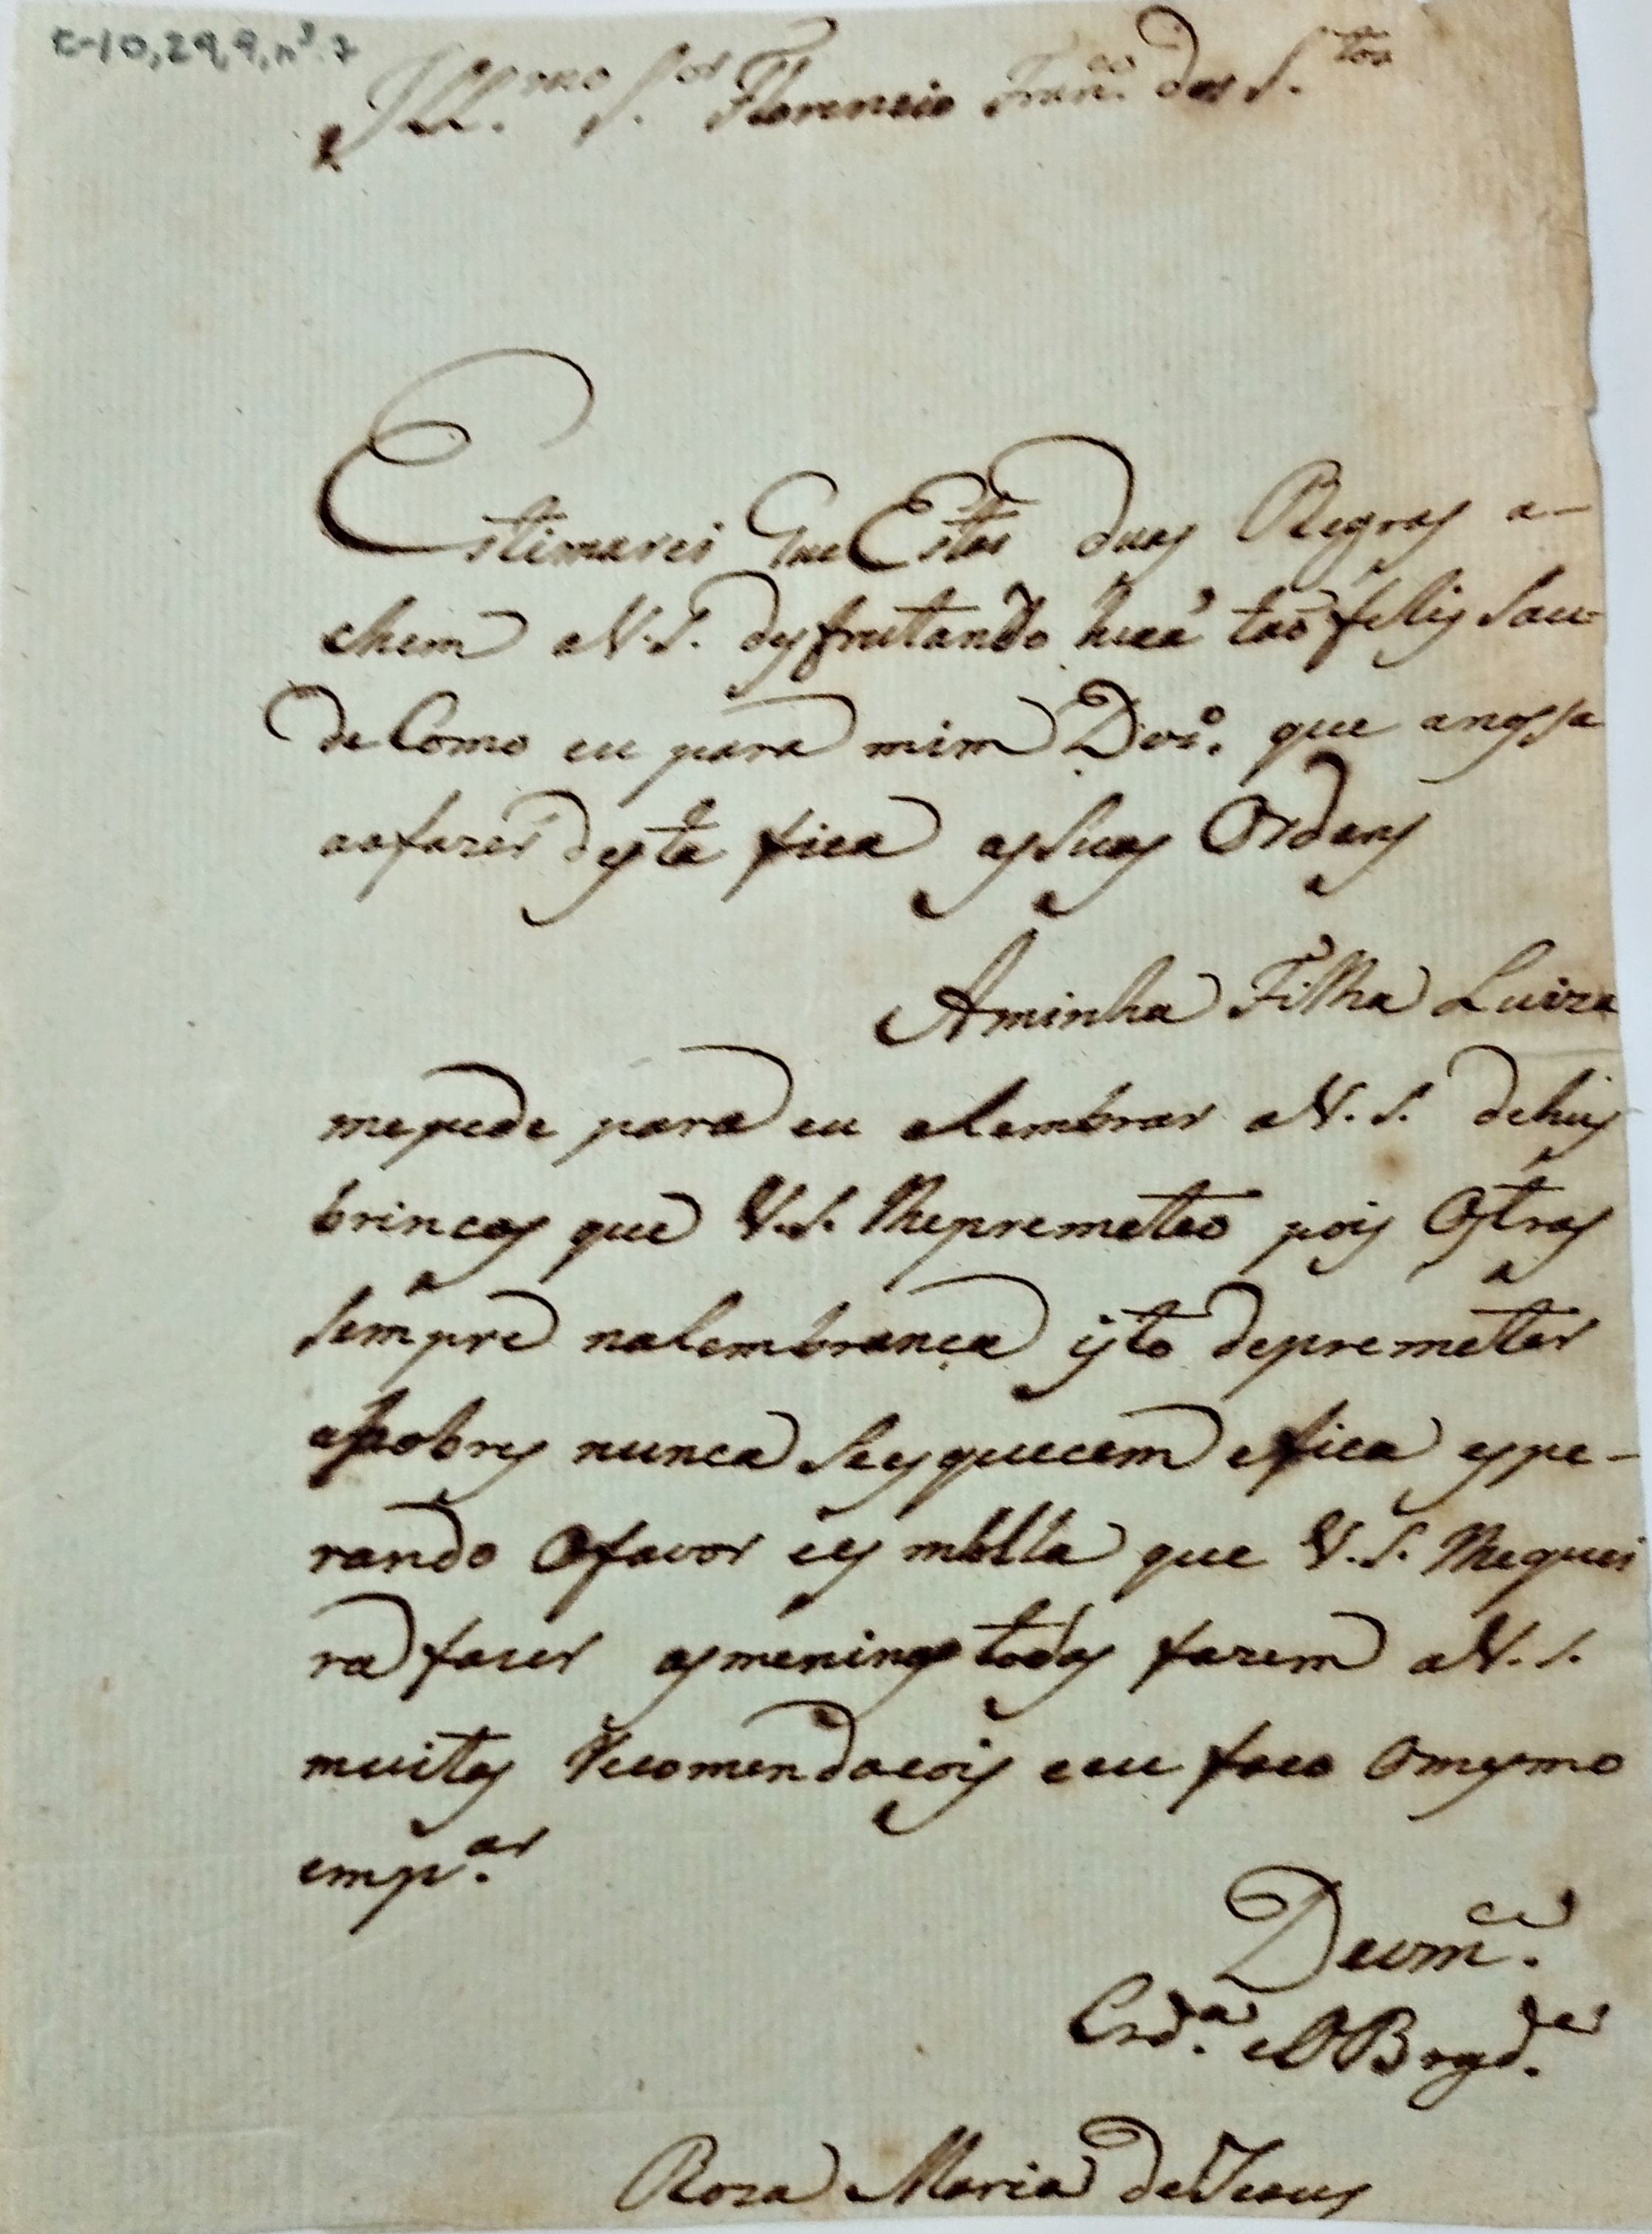 C-10,29,9,nº.7
Ill.mo S.or Florencio Fran.co dos S.tos
Estimarei Que Estas duas Regras a-
chem aV.S. desfrutando huã tão felis sau=
de Como eu para mim Dzo. que anossa
aofazer desta fica assuas Ordens
Aminha Filha Luiza
mepede para eu alembrar aV.S. dehus
brincos que V.S. lhepremeteo pois Ostras
sempre nalembranca isto depremeter
apobres nunca seesquecem efica espe-
rando Ofavor ees molla que V.S. lhequei
ra faser asmeninas todas fazem aV.S.
muitas Recomendacois eeu faco Omesmo
emp.ar
Devm.ce
Crd.a eOBrgd.a
Roza Maria deJesus